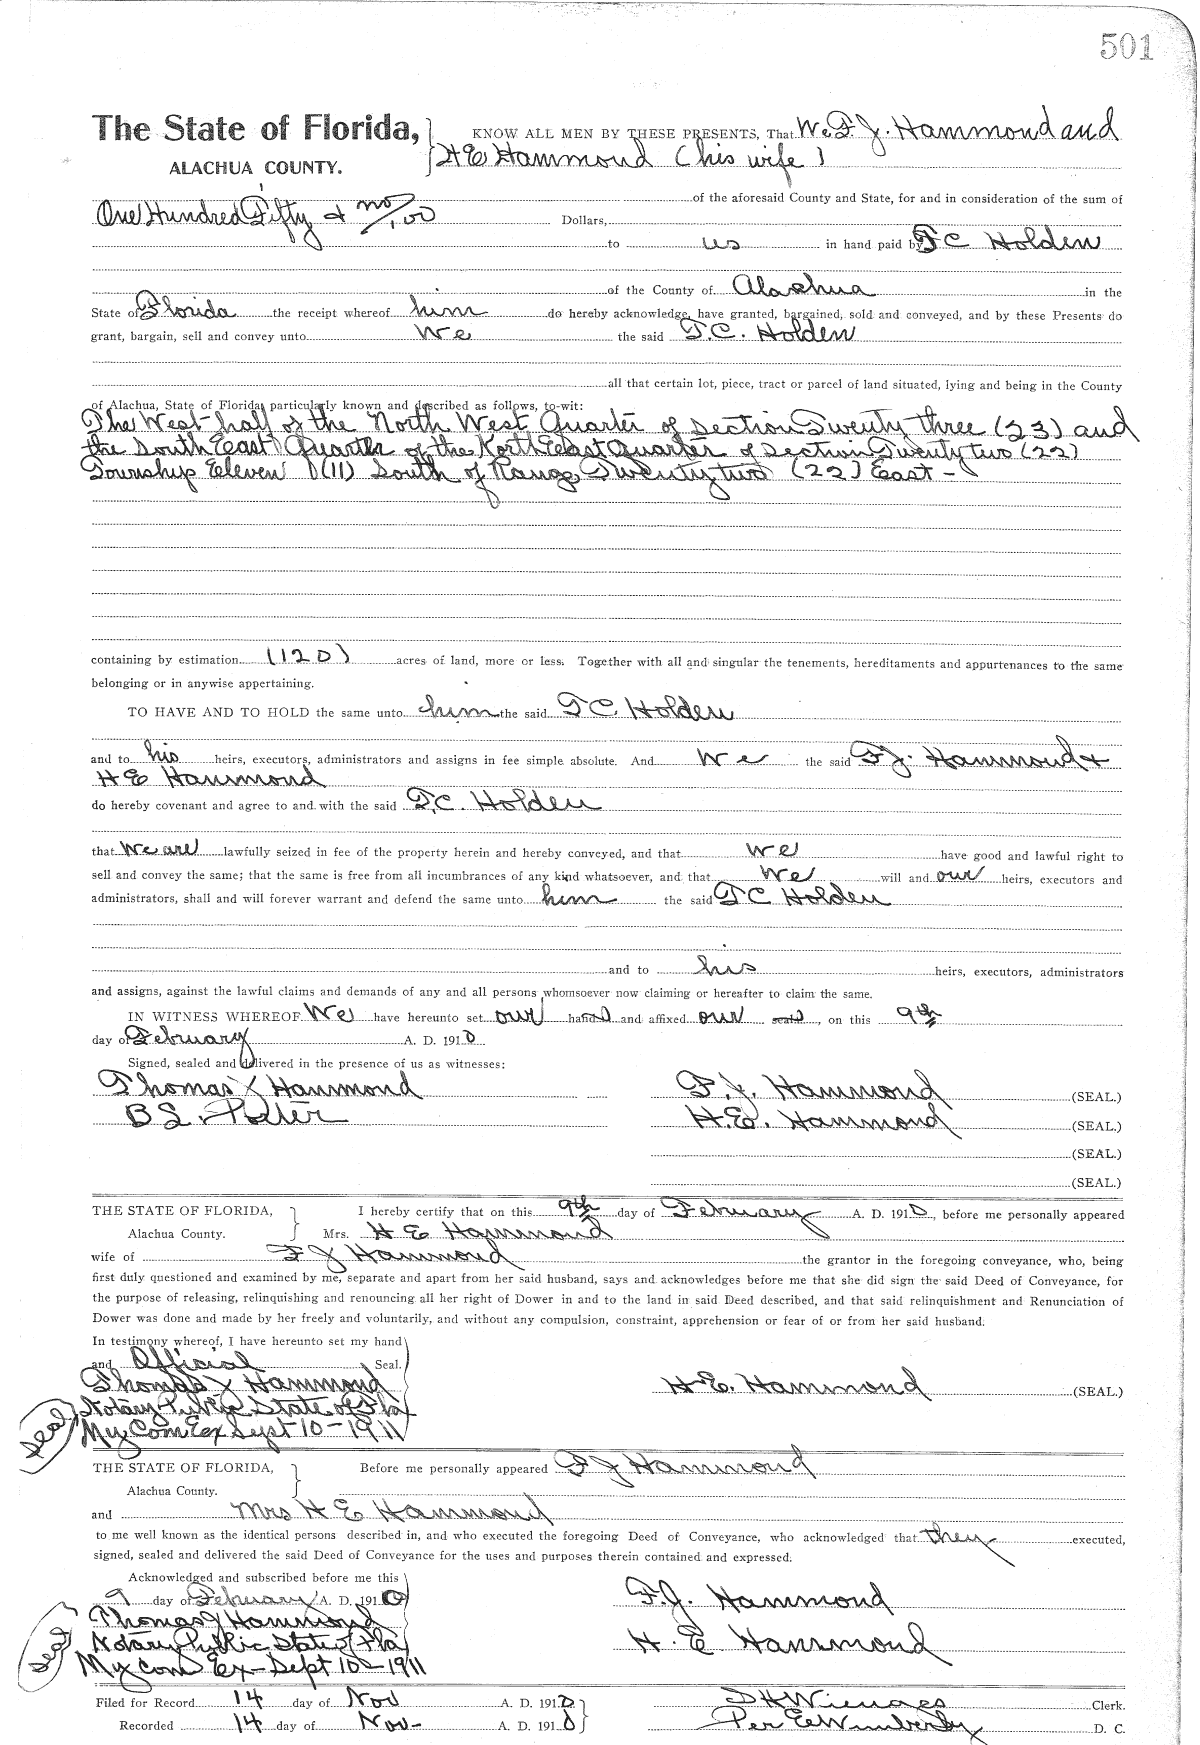 501
The State of Florida, KNOW ALL MEN BY THESE PRESENTS, That We F. J. Hammond and
ALACHUA COUNTY. H E Hammond (his wife)
of the aforesaid County and State, for and in consideration of the sum of
One Hundred Fifty & no/100 Dollars,
to us in hand paid by T C Holden
of the County of Alachua in the
State of Florida the receipt whereof him do hereby acknowledge, have granted, bargained, sold and conveyed, and by these Presents do
grant, bargain, sell and convey unto We the said T.C. Holden
all that certain lot, piece, tract or parcel of land situated, lying and being in the County
of Alachua, State of Florida, particularly known and described as follows, to-wit:
The West half of the North West Quarter of Section Twenty three (23) and
the South East Quarter of the North East Quarter of Section Twenty two (22)
Township Eleven (11) South of Range Twenty two (22) East -
containing by estimation (120) acres of land, more or less. Together with all and singular the tenements, hereditaments and appurtenances to the same
belonging or in anywise appertaining.
TO HAVE AND TO HOLD the same unto him the said T C Holden
and to his heirs, executors, administrators and assigns in fee simple absolute. And We the said F J. Hammond &
H E Hammond
do hereby covenant and agree to and with the said T.C. Holden
that We are lawfully seized in fee of the property herein and hereby conveyed, and that We have good and lawful right to
sell and convey the same; that the same is free from all incumbrances of any kind whatsoever, and that We will and our heirs, executors and
administrators, shall and will forever warrant and defend the same unto him the said T C Holden
and to his heirs, executors, administrators
and assigns, against the lawful claims and demands of any and all persons whomsoever now claiming or hereafter to claim the same.
IN WITNESS WHEREOF We have hereunto set our hand and affixed our seal, on this 9th
day of February A. D. 1910
Signed, sealed and delivered in the presence of us as witnesses:
Thomas J Hammond F. J. Hammond (SEAL.)
B S. H.E. Hammond (SEAL.)
(SEAL.)
(SEAL.)
THE STATE OF FLORIDA, I hereby certify that on this 9th day of February A. D. 1910, before me personally appeared
Alachua County. Mrs. H E Hammond
wife of F J Hammond the grantor in the foregoing conveyance, who, being
first duly questioned and examined by me, separate and apart from her said husband, says and acknowledges before me that she did sign the said Deed of Conveyance, for
the purpose of releasing, relinquishing and renouncing all her right of Dower in and to the land in said Deed described, and that said relinquishment and Renunciation of
Dower was done and made by her freely and voluntarily, and without any compulsion, constraint, apprehension or fear of or from her said husband.
In testimony whereof, I have hereunto set my hand
and Official Seal.
Thomas J Hammond H.E. Hammond (SEAL.)
Notary Public State of Fla
Seal My Com Ex Sept 10-1911
THE STATE OF FLORIDA, Before me personally appeared F J Hammond
Alachua County.
and Mrs H E Hammond
to me well known as the identical persons described in, and who executed the foregoing Deed of Conveyance, who acknowledged that they executed,
signed, sealed and delivered the said Deed of Conveyance for the uses and purposes therein contained and expressed.
Acknowledged and subscribed before me this
9 day of February A. D. 1910 F.J. Hammond
Thomas J Hammond
Notary Public State of Fla H. E Hammond
Seal My Com Ex- Sept 10-1911
Filed for Record 14 day of Nov A. D. 1910 Clerk.
Recorded 14 day of Nov- A. D. 1910 Per E Wimberly D. C.